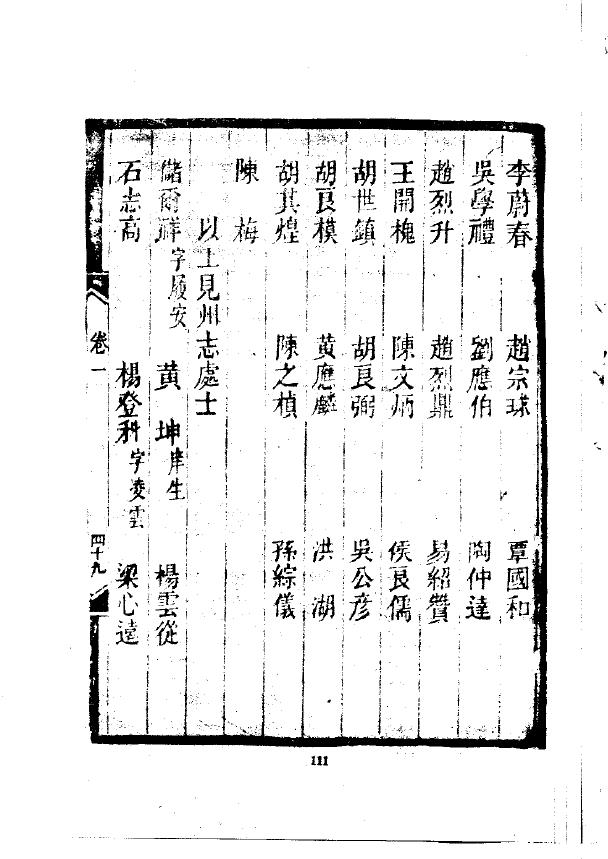 李蔚春　趙宗球　覃國和
吳學禮　劉應伯　陶仲達
趙烈升　趙烈鼎　易紹贊
王開槐　陳文炳　侯良儒
胡世鎮　胡良弼　吳公彥
胡良模　黃應麟　洪湖
胡其煌　陳之楨　孫綜儀
陳梅
以上見州志處士
儲爾㻞字履安　黃坤庠生　楊雲從
石志高　楊登科字凌雲　梁心遠
卷一
四十九
111